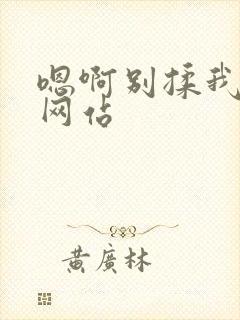 嗯啊别揉我
网佔
黄廣林